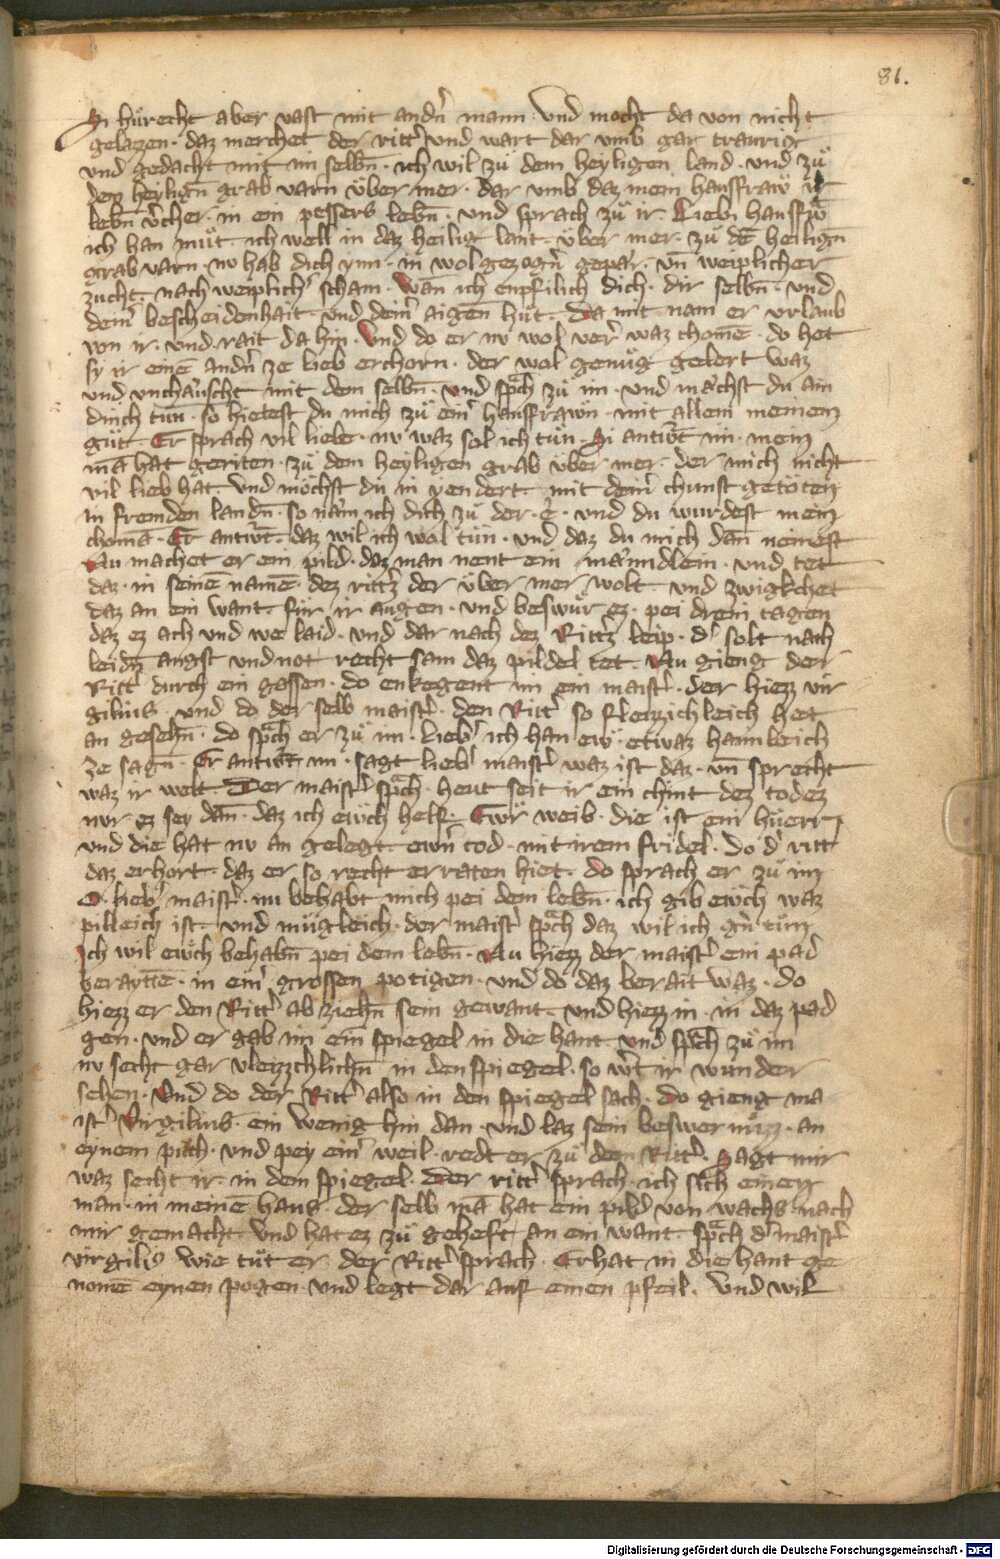 81.
Si hůrecht aber vast mit andn̄ mann und mocht da von nicht
gelazzen · daz merchet der ritt' und wart dar umb gar traurig
und gedacht mit im selbn̄ · ich wil zů dem heyligen land · und zů
dem heylign̄ grab varn über mer · dar umb daz mein hausfraw ir
lebn̄ v'cher · in ein pessers lebn̄ · und sprach zů ir · Liebi hausfrw
ich han můt · ich well in daz heilig lant · über mer · zů dē heilign̄
grab varn · nv hab dich ynn · in wolgezogn' gepär · vn̄ weiplicher
zucht · nach weiplich' scham · wan̄ ich enpfilich dich · dir selbn̄ · und
dein' bescheidenhait · und dein' aigen hůt · Da mit nam er vrlaub
von ir · und rait da hin · Und do er nv wol ver' waz chomē · do het
sy ir einē andn̄ ze lieb erchorn · der wol genůg gelert waz
und unchäuscht mit dem selbn̄ · und sp̄ch zů im · und mächst du ain
dinch tůn · so hietest du mich zů ein' hausfrawn · mit allem meinem
gůt · Er sprach vil liebe · nv waz sol ich tůn · Si antw̄t im · mein
mā hat geriten · zů dem heyligen grab über mer · der mich nicht
vil lieb hat · Und möchst du in yendert · mit dein' chunst getöten
in fremden landn̄ · so näm ich dich zů der · E · und du wurdest mein
chomā · Er antw̄t · daz wil ich wol tůn · und daz du mich dan̄ nemest
Nu machet er ein pild · daz man nent ein männdlein · und tet
daz · in seinē namē · dez ritt's der über mer wolt · und zwigkchet
daz an ein want · für ir augen · und beswůr ez · pei drein tagen
daz ez ach und we laid · und dar nach dez Ritt's leip · d' solt nach
leidn̄ angst und not recht sam daz pildel tet · Nu gieng der
Ritt' durch ein gassen · do enkegent im ein maist' · der hiezz vir
gilius · und do der selb maist' · den Ritt' so fleizzichleich het
an gesehn̄ · do sp̄ch er zů im · lieb' ich han ew etwaz hainleich
ze sagn̄ · Er antw̄t im · sagt lieb' maist' waz ist daz · vn̄ sprecht
waz ir welt · Der maist' sp̄ch · heut seit ir ein chint dez todez
nvr ez sey dan̄ · daz ich ewch helf · Ewr weib · die ist ein hůerr
und die hat nv an gelegt · ewn' tod · mit irem fridel · Do d' ritt'
daz erhort · daz er so recht erraten hiet · do sprach er zů im
O · lieb' maist' · nu behabt mich pei dem lebn̄ · ich gib ewch waz
pilleich ist · und mügleich · der maist' sp̄ch daz wil ich gn' tůn
Ich wil ewch behabn̄ pei dem lebn̄ · Nu hiezz der maist' ein pad
beraytē · in ein' grossen potigen · und do daz berait waz · do
hiezz er den Ritt' ab ziehn̄ sein gewant · und hiezz in · in daz pad
gen · und er gab im ein spiegel in die hant und sp̄ch zů im
nv secht gar vleizzchlichn̄ in den spiegel · so w't ir wunder
sehen · Und do der Ritt' also in den spiegel sach · do gieng ma
ist' Virgilius · ein wenig hin dan · und laz sein beswernůzz · an
eynem půch · und pey ein' weil · redt er zů dem Ritt' · Sagt mir
waz secht ir · in dem spiegel · Der ritt' sprach · ich sich einen
man · in meinē haus · der selb mā hat ein pild von wachs nach
mir gemacht · Und hat ez zů geheft · an ein want · sp̄ch d' maist'
virgilis wie tůt er der Ritt' sprach · Er hat in die hant ge
nomē eynen pogen · und legt dar auf einen pfeil · Und wil
Digitalisierung gefördert durch die Deutsche Forschungsgemeinschaft - DFG